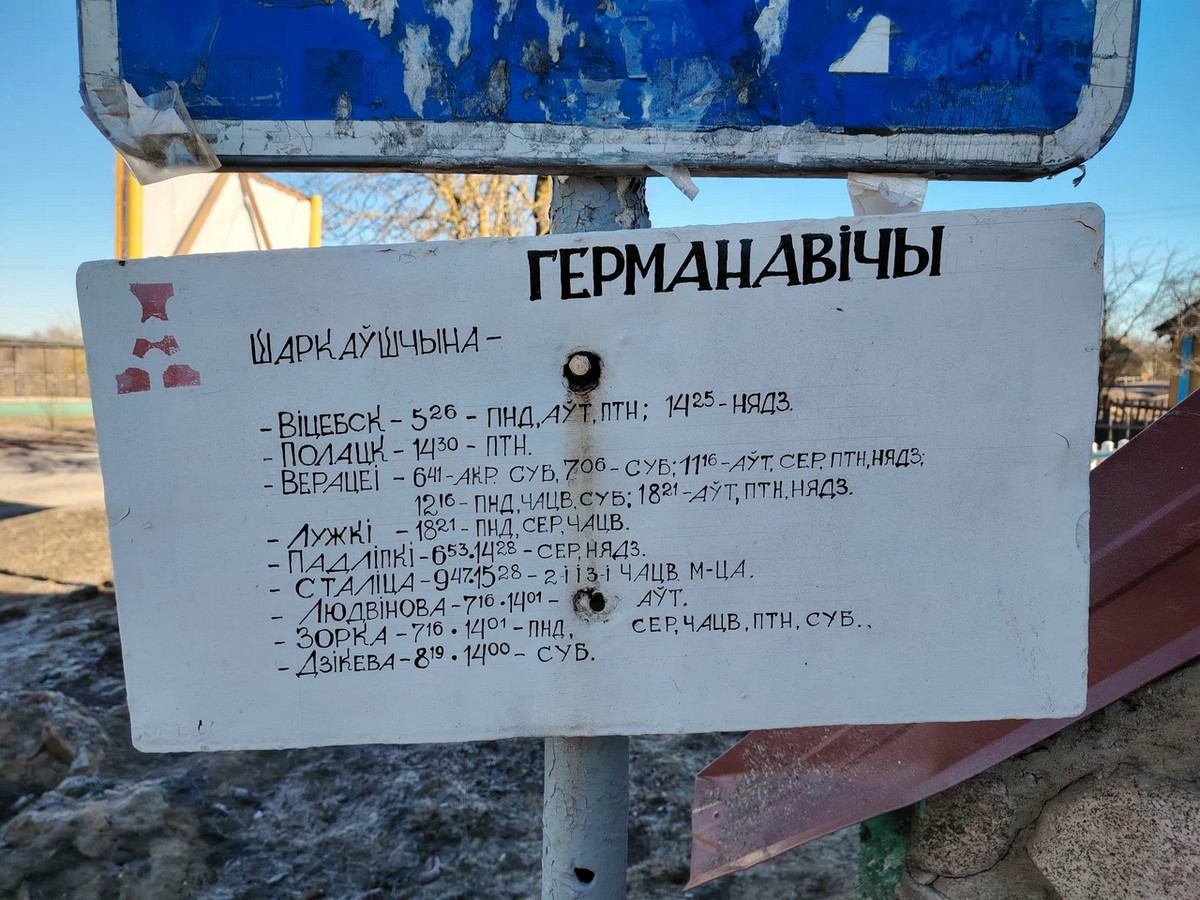 ГЕРМАНАВіЧЫ
ШАРКАЎШЧЫНА –
– ВІЦЕБСК – 5²⁶ – ПНД, АЎТ, ПТН; 14²⁵ – НЯДЗ.
– ПОЛАЦК – 14³⁰ – ПТН.
– ВЕРАЦЕІ – 6⁴¹ – АКР. СУБ, 7⁰⁶ – СУБ; 11¹⁶ – АЎТ, СЕР, ПТН, НЯДЗ;
12¹⁶ – ПНД, ЧАЦВ, СУБ; 18²¹ – АЎТ, ПТН, НЯДЗ.
– ЛУЖКІ – 18²¹ – ПНД, СЕР, ЧАЦВ.
– ПАДЛІПКІ – 6⁵³. 14²⁸ – СЕР, НЯДЗ.
– СТАЛІЦА – 9⁴⁷. 15²⁸ – 2-І І 3-І ЧАЦВ. М-ЦА.
– ЛЮДВІНОВА – 7¹⁶ . 14⁰¹ – АЎТ.
– ЗОРКА – 7¹⁶ . 14⁰¹ – ПНД, СЕР, ЧАЦВ, ПТН, СУБ..
– ДЗІКЕВА – 8¹⁹ . 14⁰⁰ – СУБ.